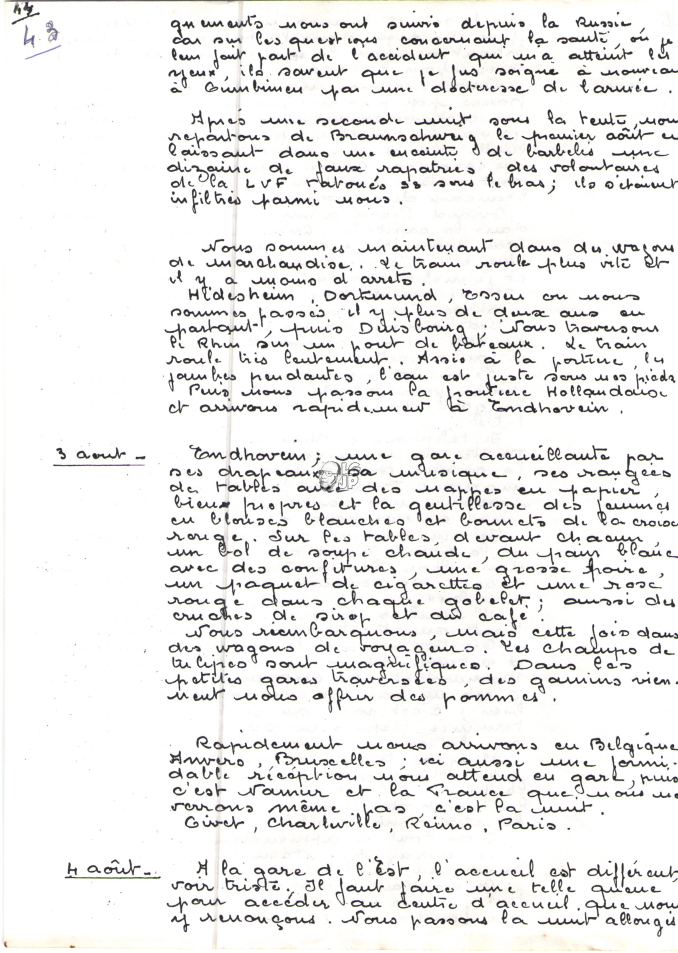 44
43
gnements nous ont suivis depuis la Russie,
car sur les questions concernant la santé, où je
leur fait part de l'accident qui m'a atteint les
yeux, ils savent que je fus soigné à nouveau
à Gumbinen par une doctoresse de l'armée.
Après une seconde nuit sous la tente, nous
repartons de Braunschweig le premier août en
laissant dans une enceinte de barbelés une
dizaine de faux rapatriés, des volontaires
de la LVF tatoués SS sous le bras; ils s'étaient
infiltrés parmi nous.
Nous sommes maintenant dans des wagons
de marchandise. Le train roule plus vite et
il y a moins d'arrets.
Hildesheim, Dortmund, Essen ou nous
sommes passés il y plus de deux ans en
partant, puis Duisbourg; Nous traversons
le Rhin sur un pont de bateaux. Le train
roule très lentement. Assis à la portière, les
jambes pendantes, l'eau est juste sous nos pieds
Puis nous passons la frontière Hollandaise
et arrivons rapidement à Endhovein.
3 aout - Endhovein; une gare accueillante par
ses drapeaux, sa musique, ses rangées
de tables avec des nappes en papier,
bien propres et la gentillesse des femmes
en blouses blanches et bonnets de la croix
rouge. Sur les tables, devant chacun
un bol de soupe chaude, du pain blanc
avec des confitures, une grosse poire,
un paquet de cigarettes et une rose
rouge dans chaque gobelet; aussi des
cruches de sirop et du café.
Nous réembarquons, mais cette fois dans
des wagons de voyageurs. Les champs de
tulipes sont magnifiques. Dans les
petites gares traversées, des gamins vien-
nent nous offrir des pommes.
Rapidement nous arrivons en Belgique
Anvers, Bruxelles; ici aussi une formi-
dable réception nous attend en gare, puis
c'est Namur et la France que nous ne
verrons même pas c'est la nuit.
Givet, Charleville, Reims, Paris.
4 août - A la gare de l'Est, l'accueil est différent,
voir triste. Il faut faire une telle queue
pour accéder au centre d'accueil que nous
y renonçons. Nous passons la nuit allongés